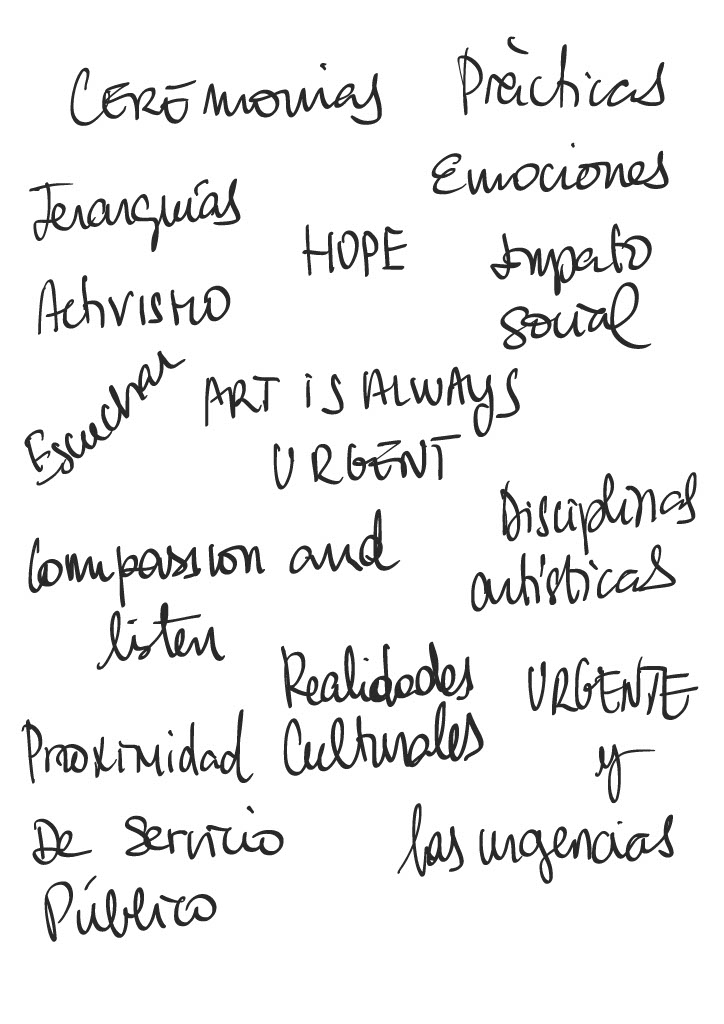 CEREMONIAS
Pràcticas
Jerarquías
Emociones
HOPE
Impato
social
Activismo
Escuchar
ART is ALWAYS
URGENT
Disciplinas
artísticas
Compassion and
listen
Realidades
Culturales
URGENTE
y
las urgencias
Proximidad
De Servicio
Público